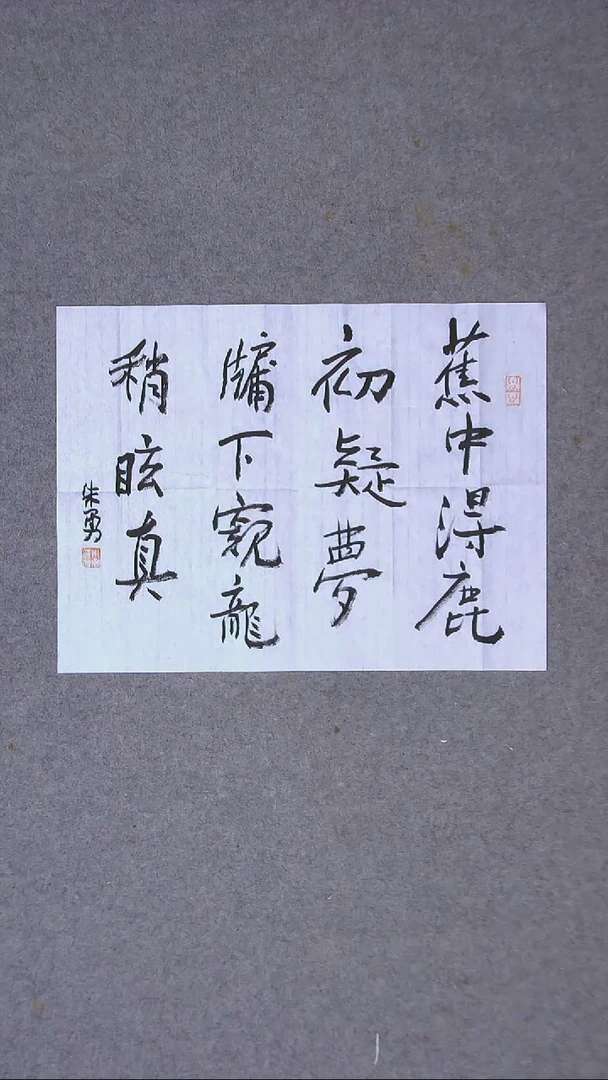 蕉中得鹿
初疑夢
牖下窺龍
稍眩真
朱勇